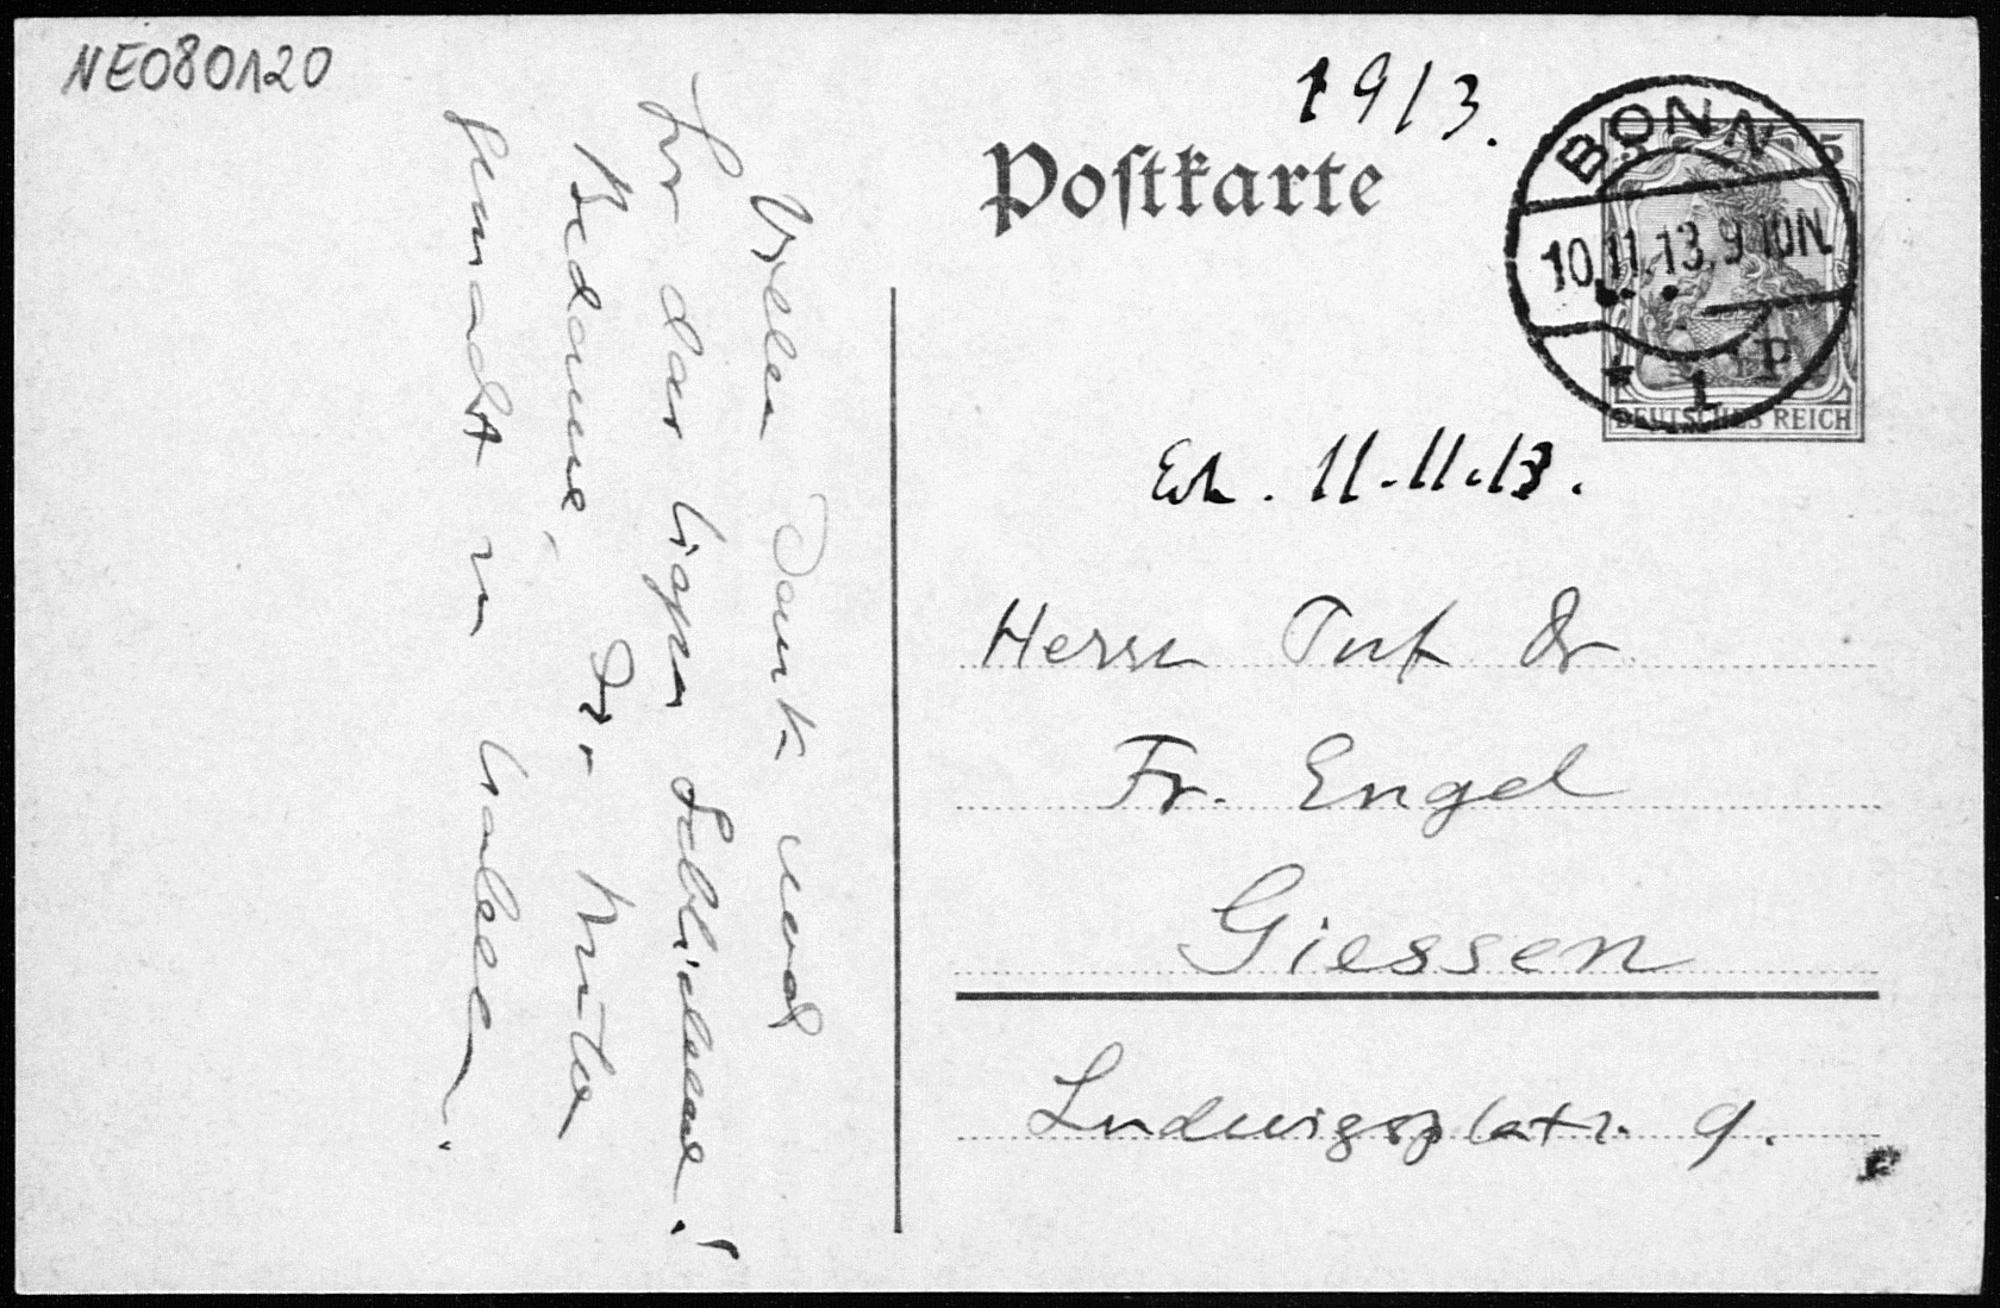 NE080120
19/3.
Postkarte
BONN
10.11.13.9-10N.
* 1 P
5 5
DEUTSCHES REICH
Erh. 11.11.13.
Herrn Prof Dr
Fr. Engel
Giessen
Ludwigsplatz 9.
Vielen Dank und
für das
Bedaure, Dr. Mühe
gemacht zu haben.